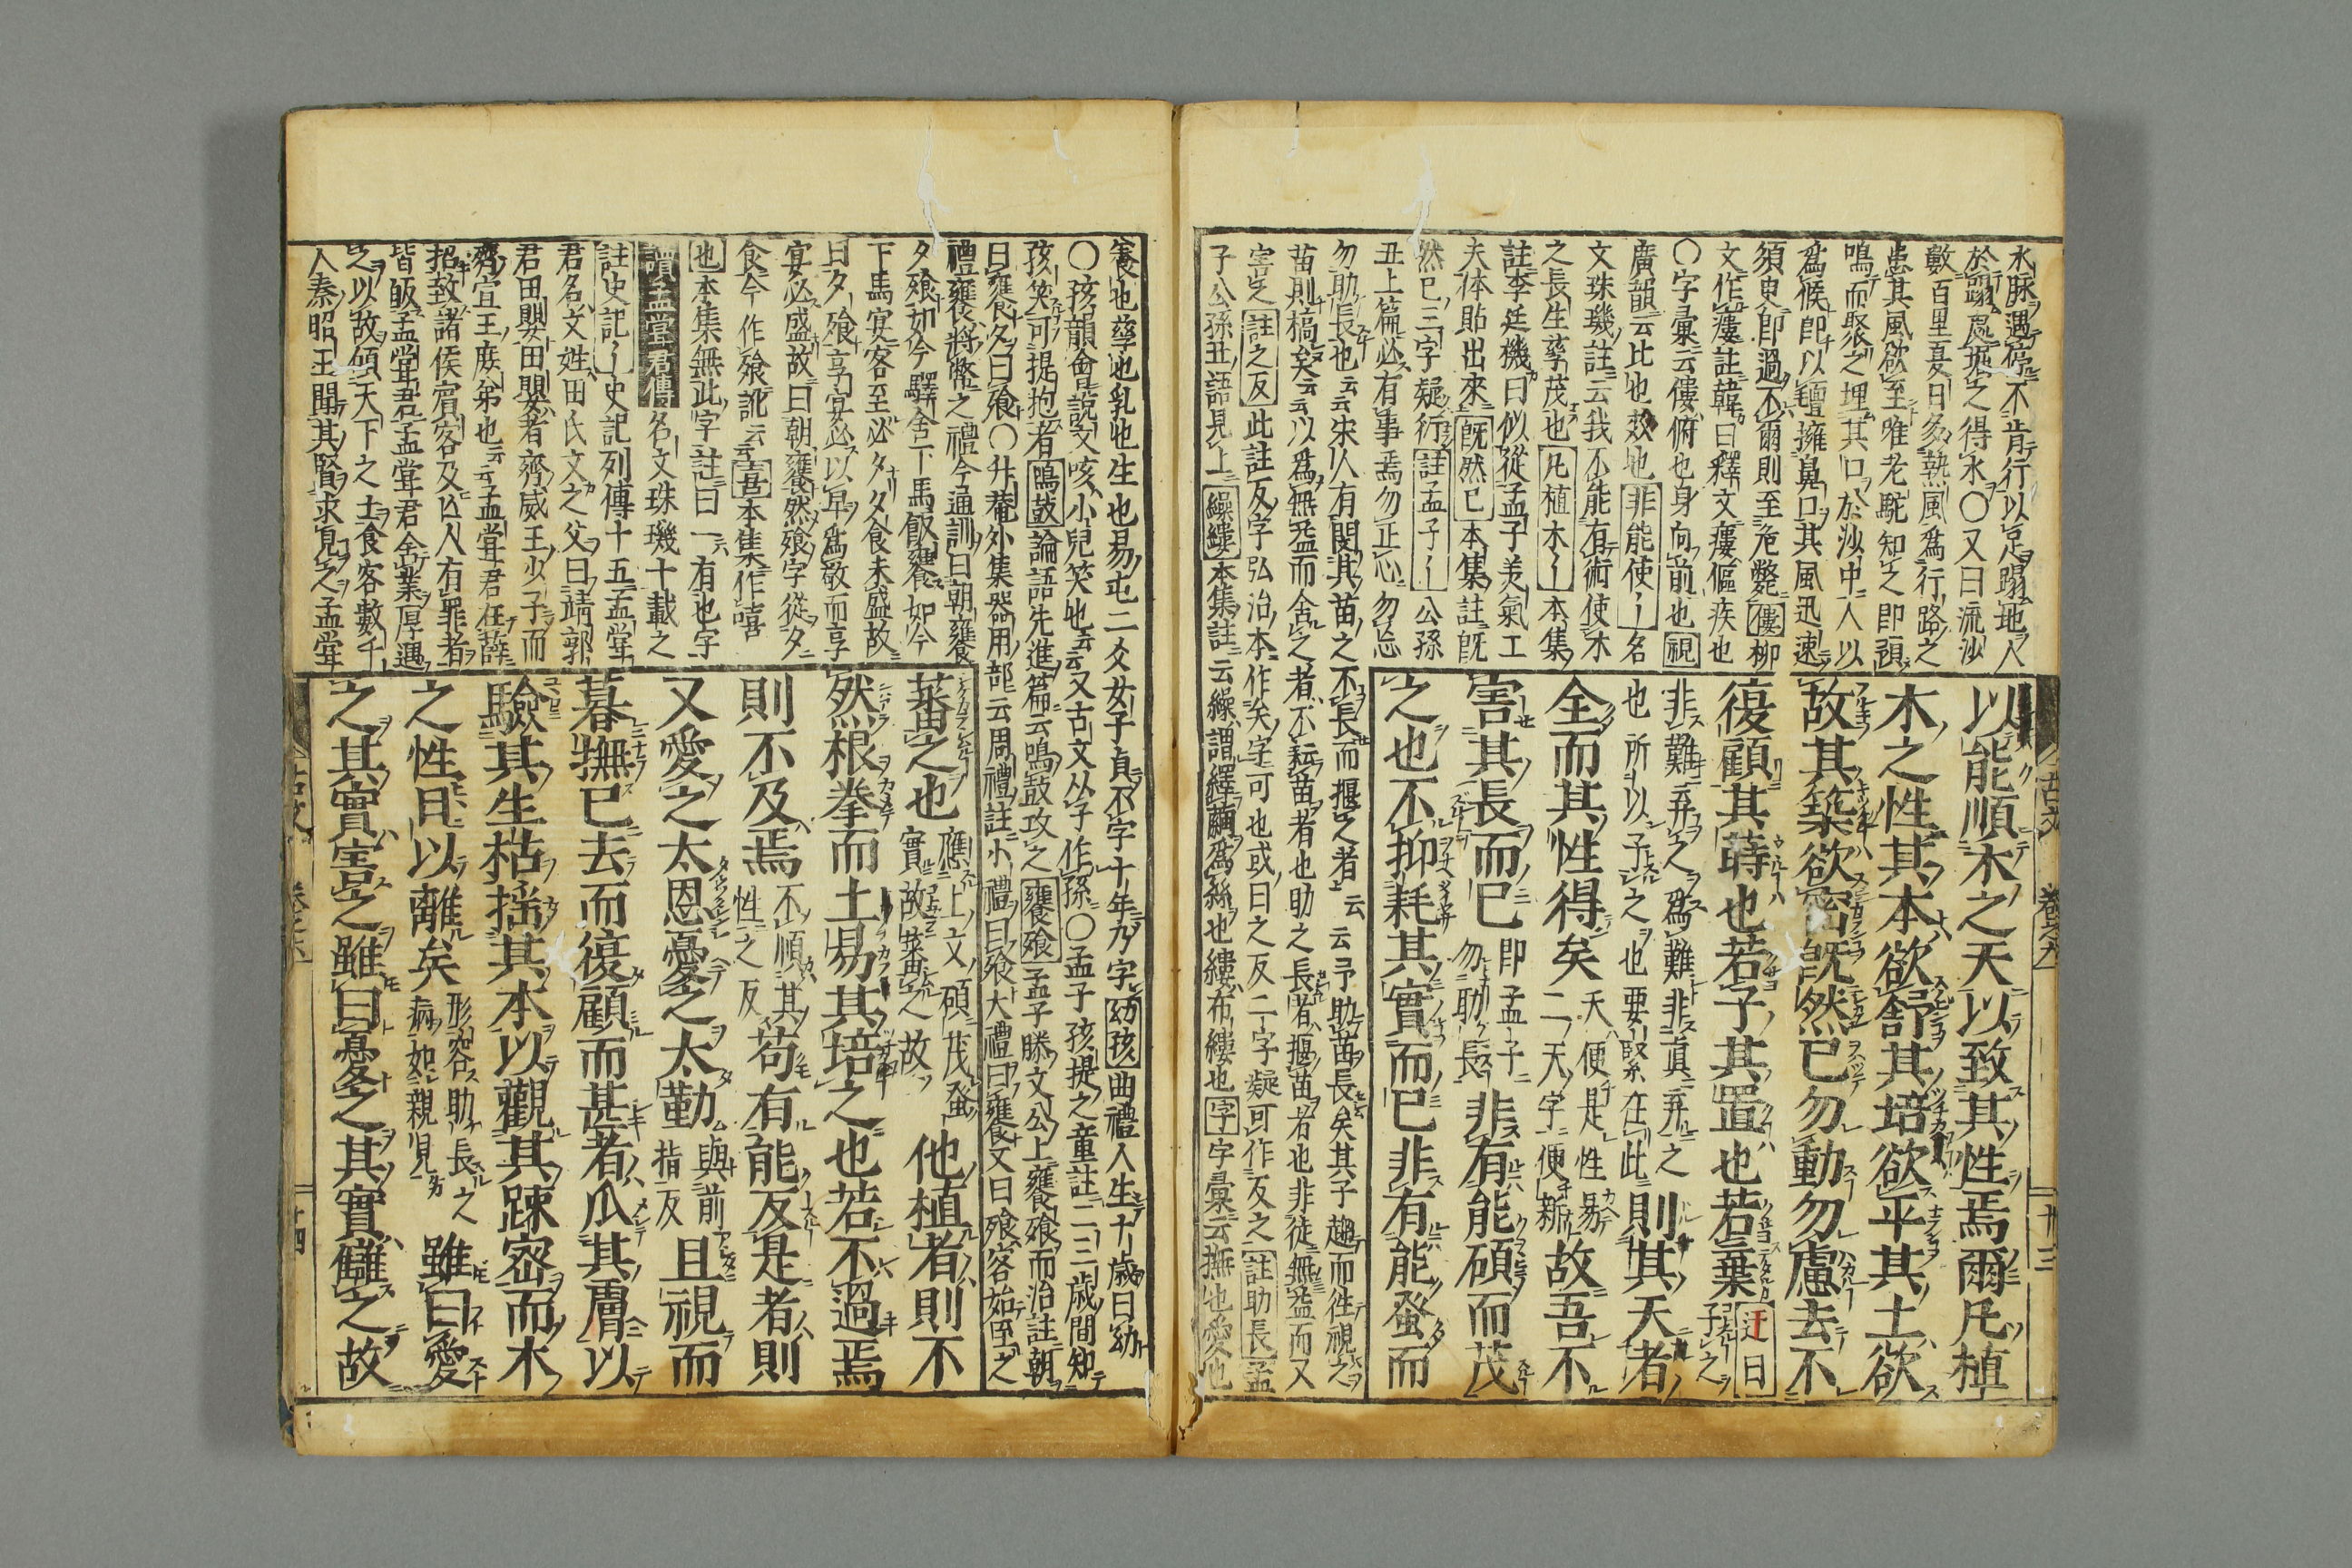 水脉過停不肯行以足蹋地人
於蹋處掘之得水〇又曰流沙
數百里夏日多熱風爲行路之
患其風欲至唯老駝知之即預
鳴而聚之埋其口於沙中人以
爲候即以氈擁鼻口其風迅速
須臾即過不爾則至危斃僂柳
文作瘻註韓曰釋文瘻傴疾也
〇字彙云僂俯也身向前也視
廣韻云比也效也非能使〻名
文珠璣註云我不能有術使木
之長生孳茂也凡植木〻本集
註李廷機曰似從孟子羙氣工
夫体貼出來旣然已本集註旣
然已三字疑衍註孟子〻公孫
丑上篇必有事焉勿正心勿忘
勿助長也云云宋人有閔其苗之不長而揠之者云云予助苗長矣其子趨而徃視之
苗則槁矣云云以爲無益而舍之者不耘苗者也助之長者揠苗者也非徒無益而又
害之註之反此註反字弘治本作矣字可也或曰之反二字疑可作反之註助長孟
子公孫丑語見上繰縷本集註云繰謂繹繭爲絲也縷布縷也字字彙云撫也愛也
以能順木之天以致其性焉爾凡植
木之性其本欲舒其培欲平其土欲
故其築欲密旣然已勿動勿慮去不
復顧其蒔也若子其置也若棄迂曰子之
非難弃之爲難非真弃之
也所以子之也要緊在此則其天者
全而其性得矣天便是性易二天字便新故吾不
害其長而已即孟子勿助長非有能碩而茂
之也不抑耗其實而已非有能蚤而
古文 卷之九 廿三
養也孳也乳也生也易屯二爻女子貞不字十年乃字幼孩曲禮人生十歲曰幼
〇孩韻會說文咳小兒笑也云云又古文从子作孩〇孟子孩提之童註二三歲間知
孩笑可提抱者鳴鼓論語先進篇云鳴鼓攻之饔飧孟子滕文公上饔飧而治註朝
曰饔夕曰飧〇升菴外集器用部云周禮註小禮曰飧大禮曰饔又曰飧客始至之
禮饔將幣之禮今通訓曰朝饔
夕飧如今驛舍下馬飯饔如今
下馬宴客至必夕夕食未盛故
曰夕飧享宴必以早爲敬而享
宴必盛故曰朝饔然飧字從夕
食今作飱訛云云喜本集作嘻
也本集無此字註曰一有也字
謂孟甞君傳名文珠璣十載之
註史記〻史記列傳十五孟甞
君名文姓田氏文之父曰靖郭
君田嬰田嬰者齊威王少子而
齊宣王庶弟也云云孟甞君在薛
招致諸侯賓客及亾人有罪者
皆皈孟甞君孟甞君舍業厚遇
之以故傾天下之士食客數千
人秦昭王聞其賢求見之孟甞
蕃之也應上文碩茂蚤實故蕃之故他植者則不
然根拳而土易其培之也若不過焉
則不及焉不順其性之反苟有能反是者則
又愛之太恩憂之太勤與前指反且視而
暮撫已去而復顧而甚者爪其膚以
驗其生枯搖其本以觀其踈密而木
之性日以離矣形容助長之病如親見雖曰愛
之其實害之雖曰憂之其實讎之故
古文 卷之九 廿四